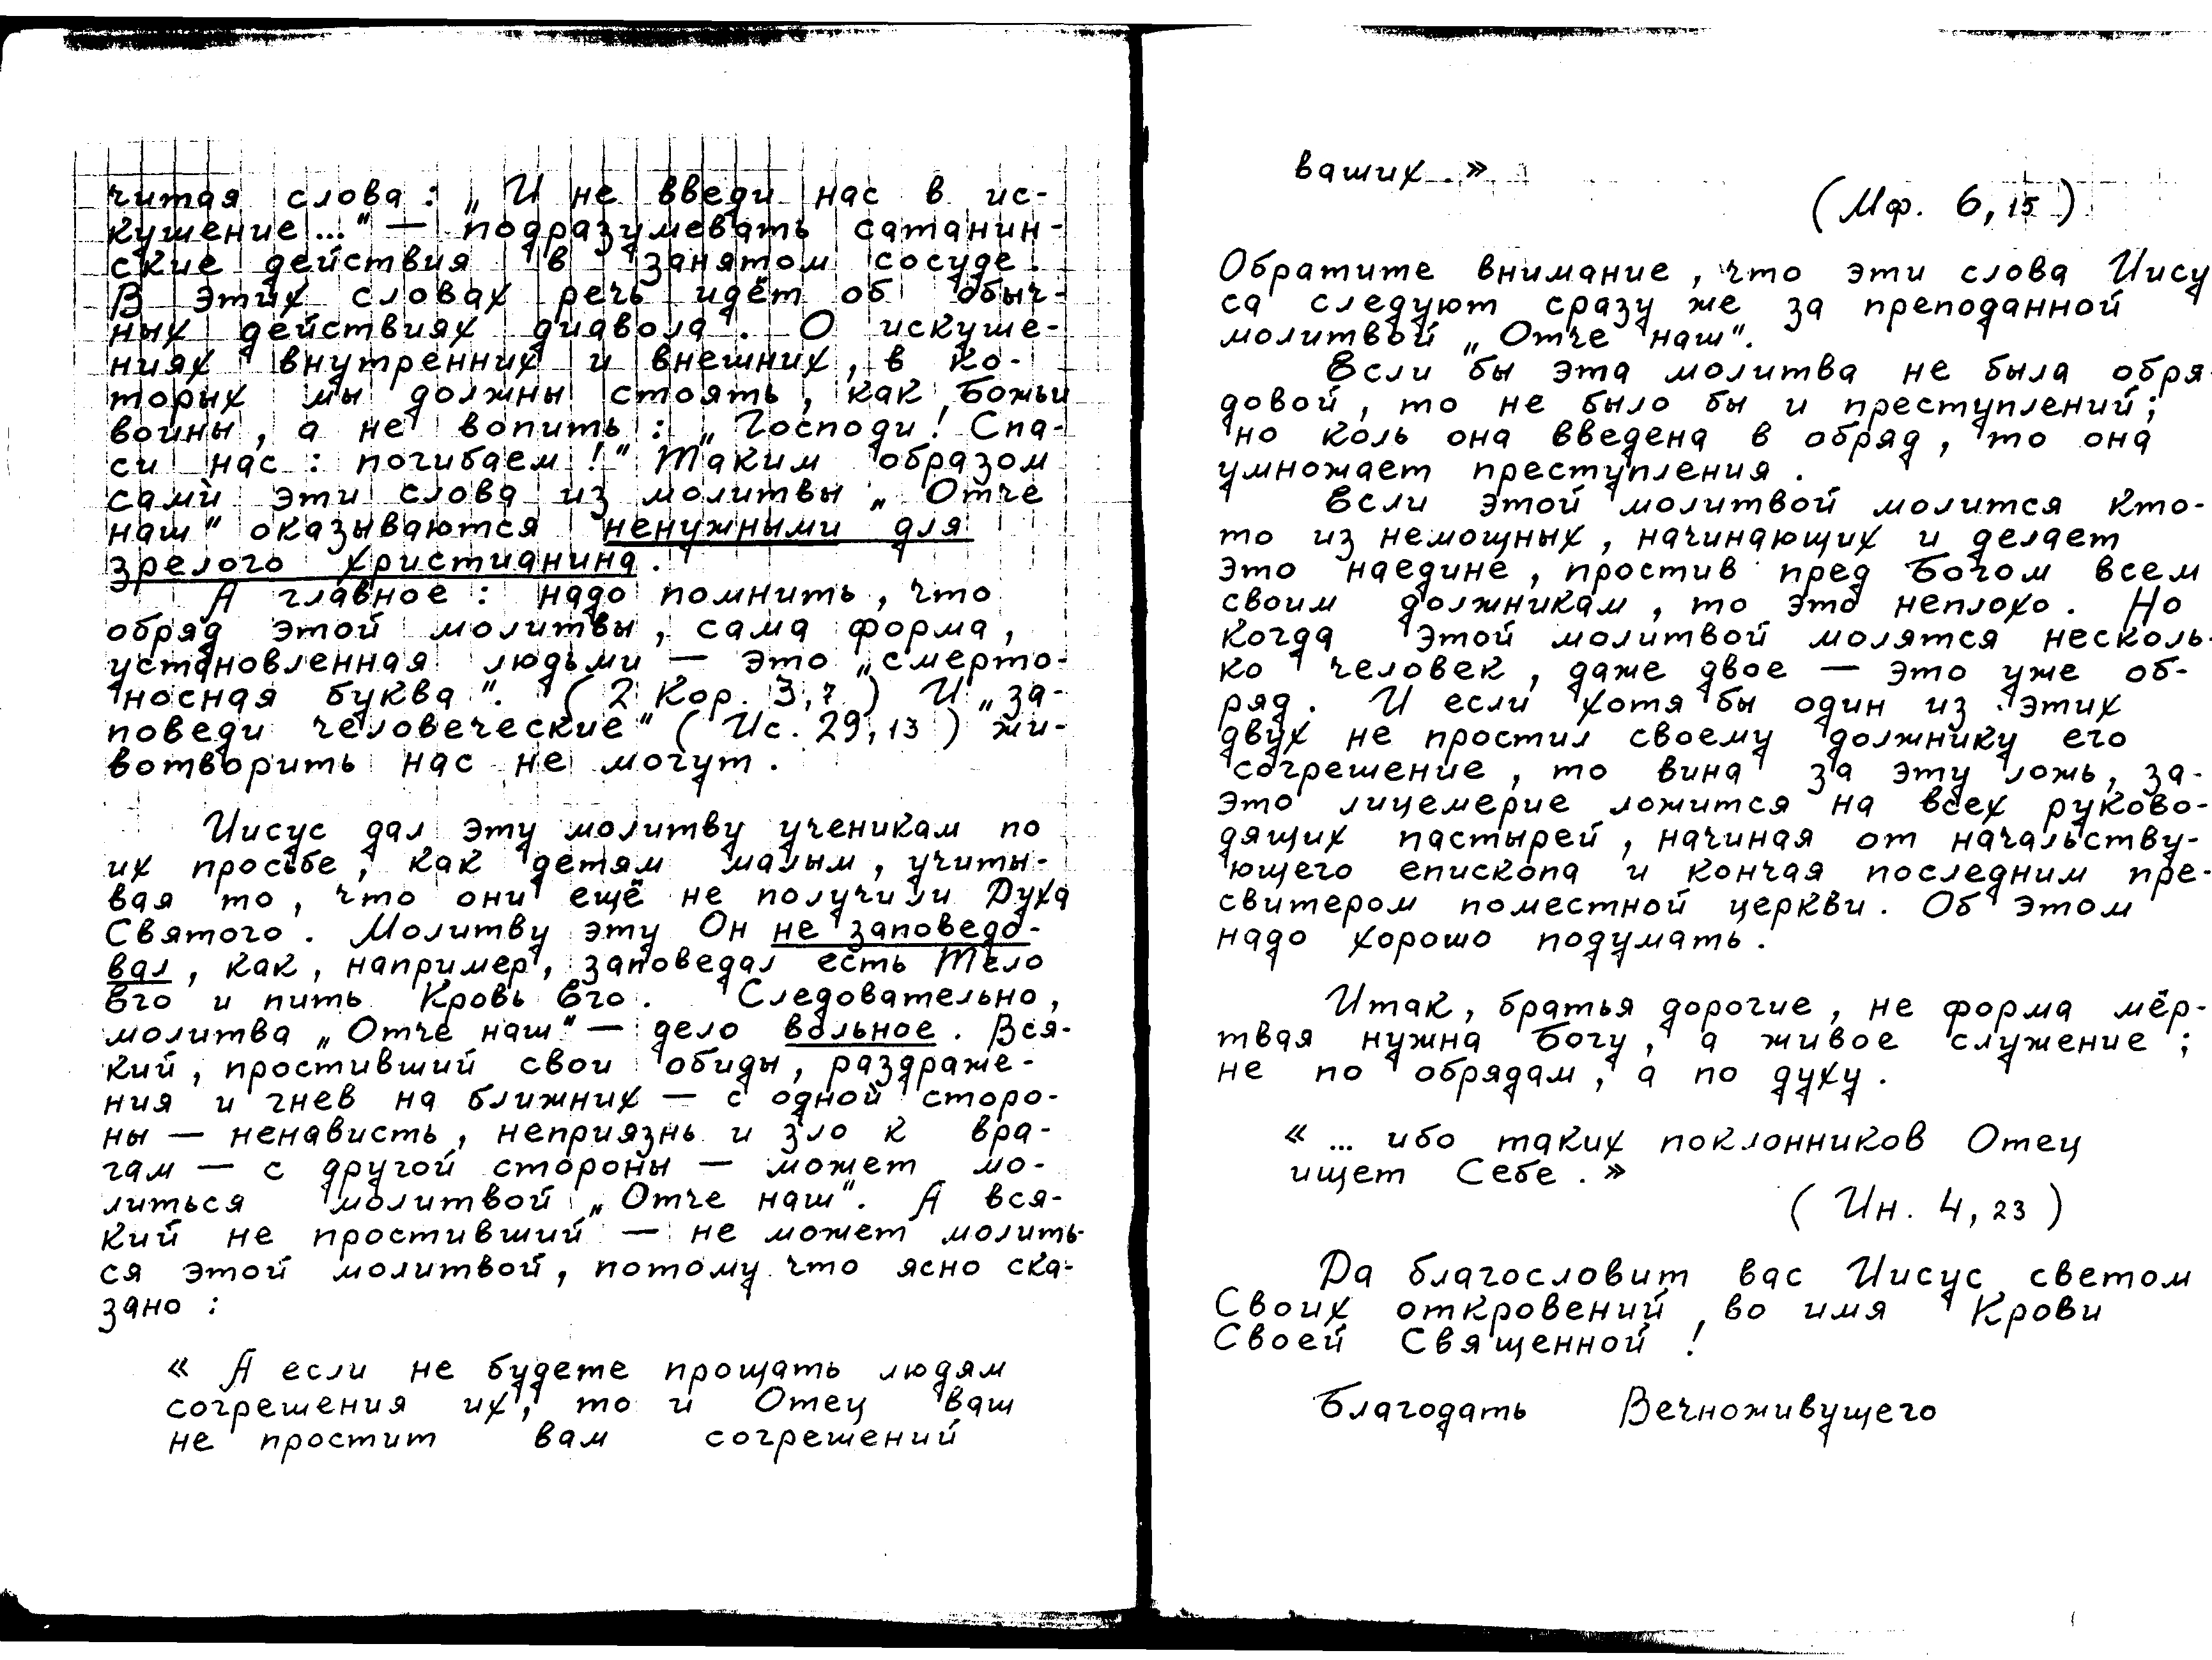 читая слова: „И не введи нас в ис-
кушение..." — подразумевать сатанин-
ские действия в занятом сосуде.
В этих словах речь идёт об обыч-
ных действиях диавола. О искуше-
ниях внутренних и внешних, в ко-
торых мы должны стоять, как Божьи
воины, а не вопить: „Господи! Спа-
си нас: погибаем!" Таким образом
сами эти слова из молитвы „Отче
наш" оказываются ненужными для
зрелого христианина.
А главное: надо помнить, что
обряд этой молитвы, сама форма,
установленная людьми — это „смерто-
носная буква". (2 Кор. 3,7) И „за-
поведи человеческие" (Ис. 29,13) жи-
вотворить нас не могут.
Иисус дал эту молитву ученикам по
их просьбе, как детям малым, учиты-
вая то, что они ещё не получили Духа
Святого. Молитву эту Он не заповедо-
вал, как, например, заповедал есть Тело
Его и пить Кровь Его. Следовательно,
молитва „Отче наш" — дело вольное. Вся-
кий, простивший свои обиды, раздраже-
ния и гнев на ближних — с одной сторо-
ны — ненависть, неприязнь и зло к вра-
гам — с другой стороны — может мо-
литься молитвой „Отче наш". А вся-
кий не простивший — не может молить-
ся этой молитвой, потому что ясно ска-
зано:
« А если не будете прощать людям
согрешения их, то и Отец ваш
не простит вам согрешений
ваших.»
(Мф. 6,15)
Обратите внимание, что эти слова Иису
са следуют сразу же за преподанной
молитвой „Отче наш".
Если бы эта молитва не была обря-
довой, то не было бы и преступлений;
но коль она введена в обряд, то она
умножает преступления.
Если этой молитвой молится кто-
то из немощных, начинающих и делает
это наедине, простив пред Богом всем
своим должникам, то это неплохо. Но
когда этой молитвой молятся несколь-
ко человек, даже двое — это уже об-
ряд. И если хотя бы один из этих
двух не простил своему должнику его
согрешение, то вина за эту ложь, за-
это лицемерие ложится на всех руково-
дящих пастырей, начиная от начальству-
ющего епископа и кончая последним пре-
свитером поместной церкви. Об этом
надо хорошо подумать.
Итак, братья дорогие, не форма мёр-
твая нужна Богу, а живое служение;
не по обрядам, а по духу.
« ... ибо таких поклонников Отец
ищет Себе.»
(Ин. 4,23)
Да благословит вас Иисус светом
Своих откровений, во имя Крови
Своей Священной!
Благодать Вечноживущего